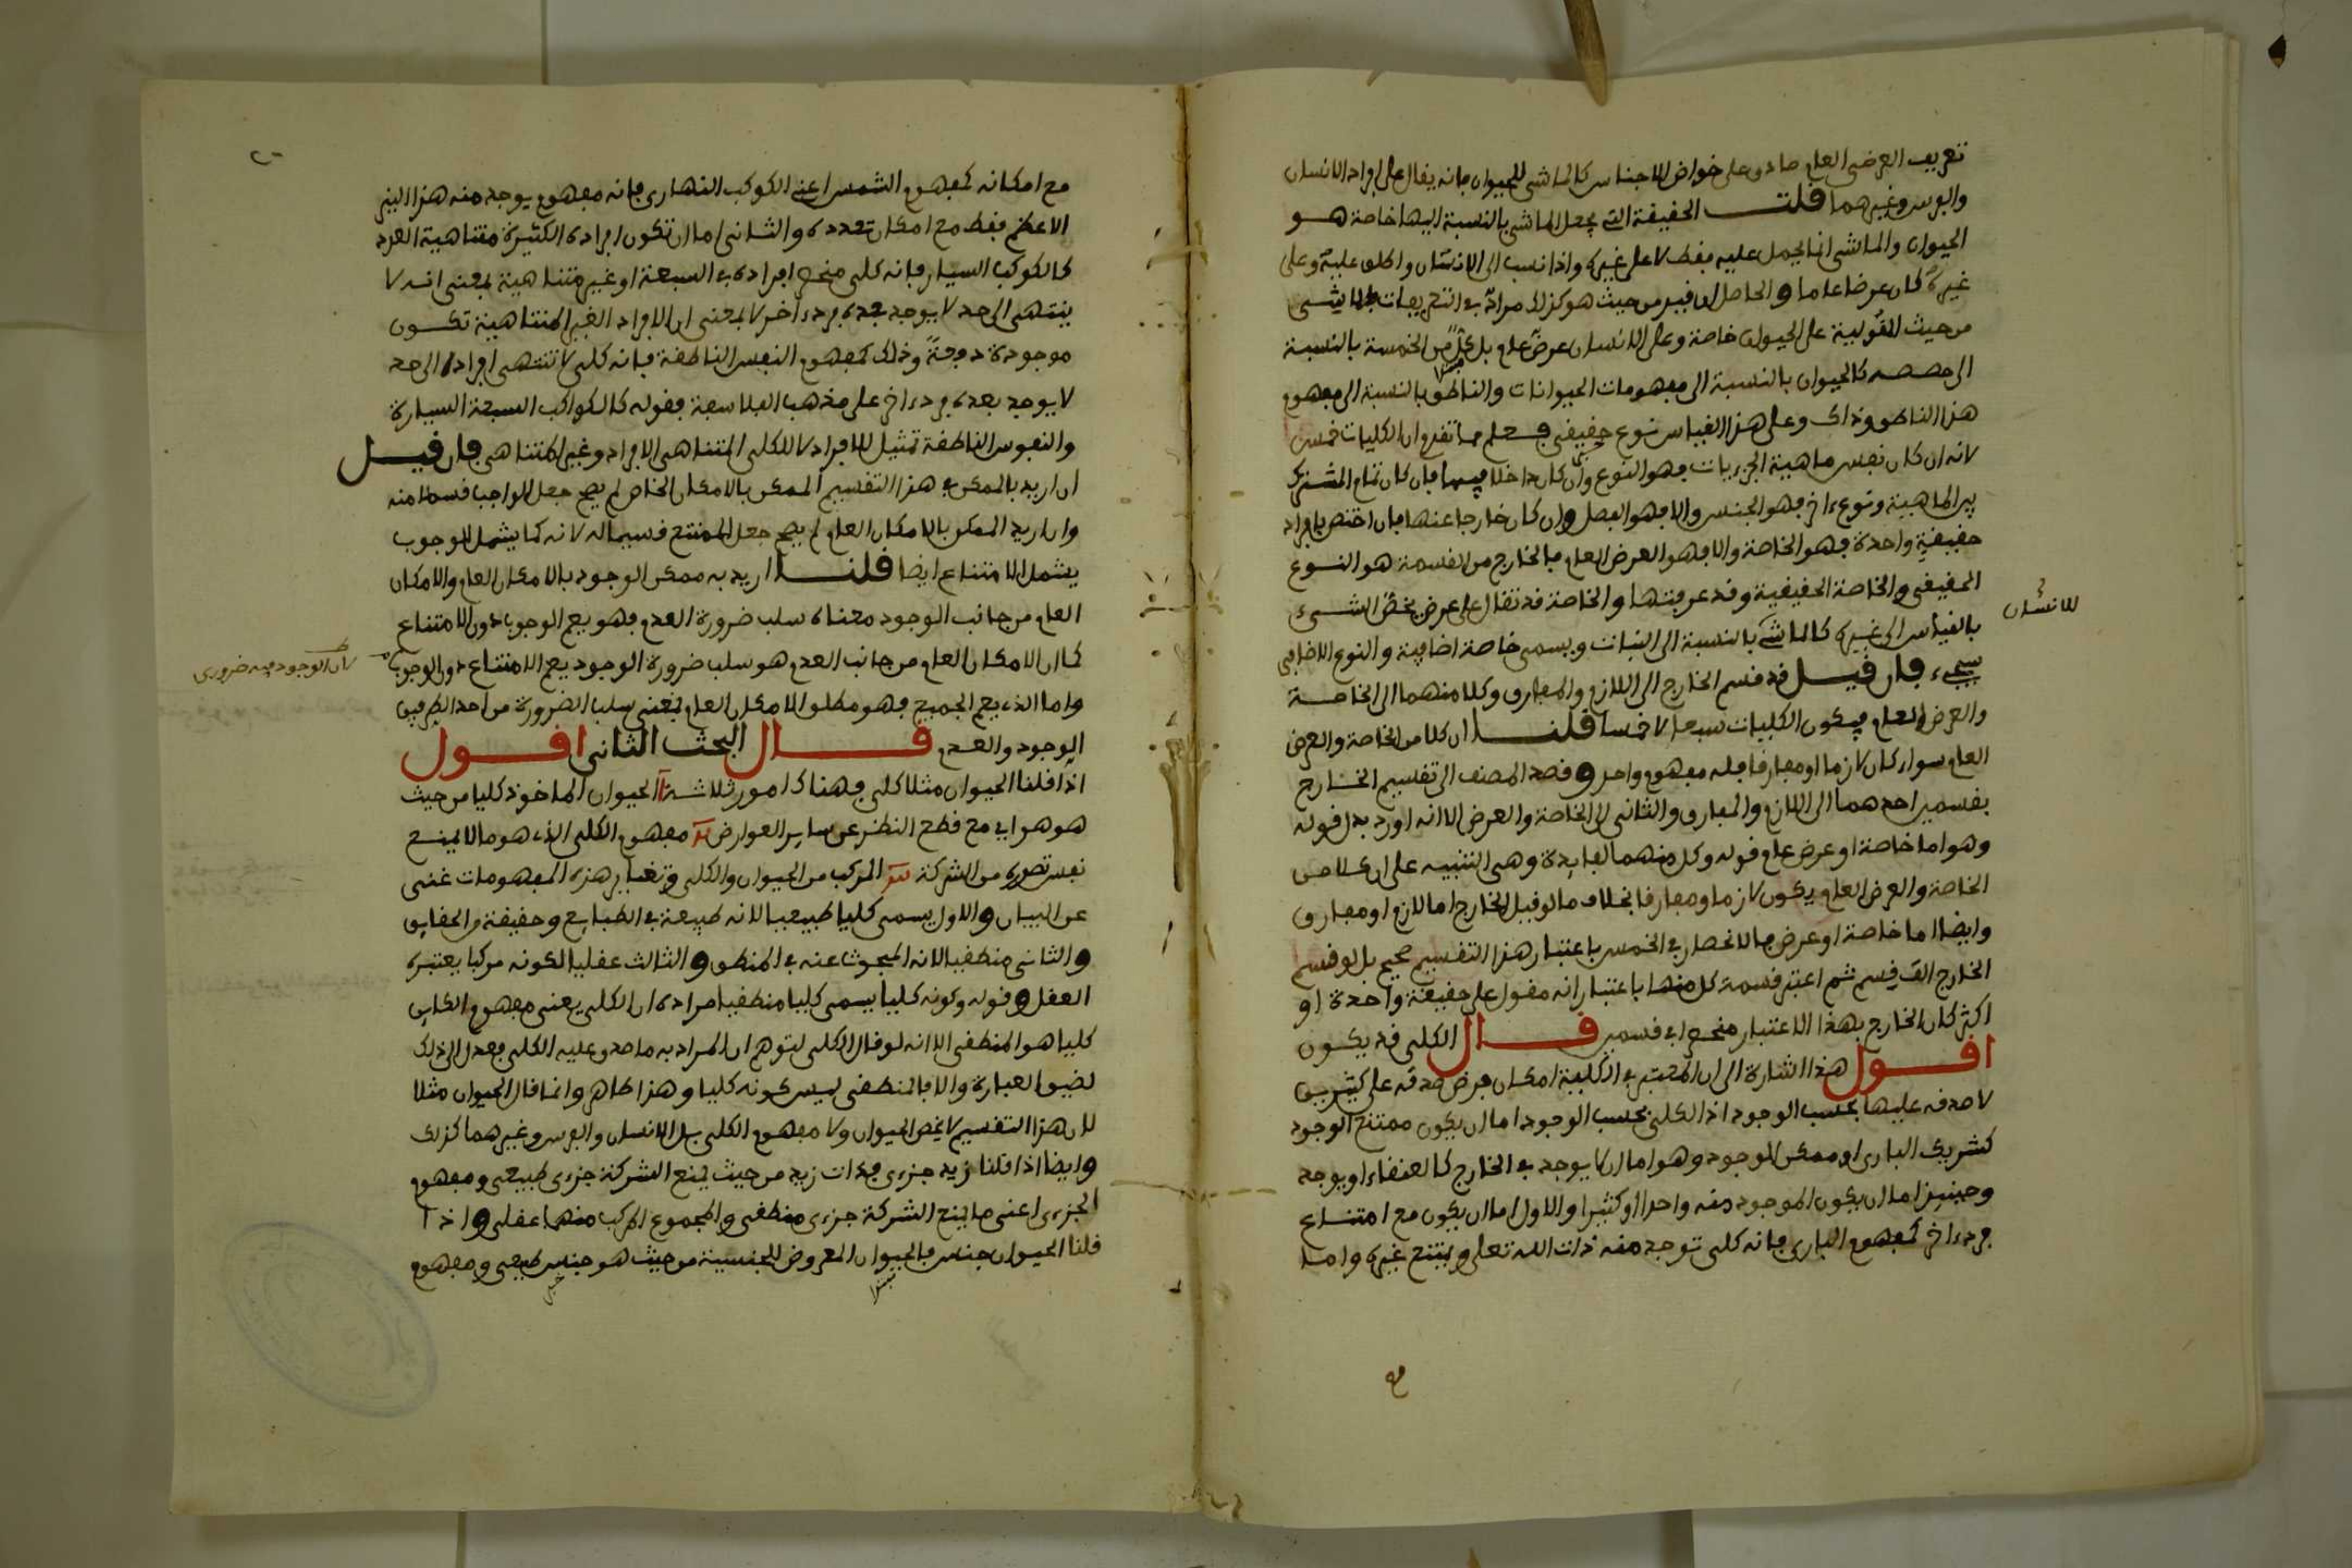 تعريف العرض العام صادق على خواص الاجناس كالماشي للحيوان فانه يقال على افراد الانسان
والفرس وغيرهما قلت الحقيقة التي يجعل الماشي بالنسبة اليها خاصة هو
الحيوان والماشي انما يحمل عليه فقط لا على غيره واذا نسب الى الانسان واطلق عليه وعلى
غيره كان عرضا عاما والحاصل ان قيد من حيث هو كذلك مراد في التعريفات فالماشي
من حيث المقولية على الحيوان خاصة وعلى الانسان عرض عام بل كل من الخمسة بالنسبة
الى حصصه كالحيوان بالنسبة الى مفهومات الحيوانات والناطق بالنسبة الى مفهوم
هذا الناطق وذاك وعلى هذا القياس نوع حقيقي فعلم مما تقدم ان الكليات خمس
لانه ان كان نفس ماهية الجزءيات فهو النوع وان كان داخلا فيها فان كان تمام المشترك
بين الماهية ونوع ءاخر فهو الجنس والا فهو الفصل وان كان خارجا عنها فان اختص بافراد
حقيقة واحدة فهو الخاصة والا فهو العرض العام فالخارج من القسمة هو النوع
الحقيقي والخاصة الحقيقية وقد عرفتها والخاصة قد تقال على عرض يخص الشيء
للانسان
بالقياس الى غيره كالماشي بالنسبة الى النبات ويسمى خاصة اضافية والنوع الاضافي
سيجيء فان قيل قد قسم الخارج الى اللازم والمفارق وكلا منهما الى الخاصة
والعرض العام فيكون الكليات سبعا لا خمسا قلنا ان كلا من الخاصة والعرض
العام سواء كان لازما او مفارقا فله مفهوم واحد وقصد المصنف الى تقسيم الخارج
بقسمين احدهما الى اللازم والمفارق والثاني الى الخاصة والعرض الا انه اورد بدل قوله
وهو اما خاصة او عرض عام قوله وكل منهما لفايدة وهي التنبيه على ان كلا من
الخاصة والعرض العام يكون لازما ومفارقا بخلاف ما لو قيل الخارج اما لازم او مفارق
وايضا اما خاصة او عرض فالانحصار في الخمس باعتبار هذا التقسيم صحيح بل لو قسم
الخارج الف قسم ثم اعتبر قسمة كل منها باعتبار انه مقول على حقيقة واحدة او
اكثر كان الخارج بهذا الاعتبار منحصرا في قسمين قال الكلي قد يكون
اقول هذا اشارة الى ان المعتبر في الكلية امكان فرض صدقه على كثيرين
لا صدقه عليها بحسب الوجود اذ الكلي بحسب الوجود اما ان يكون ممتنع الوجود
كشريك الباري او ممكن الوجود وهو اما ان لا يوجد في الخارج كالعنقاء او يوجد
وحينيذ اما ان يكون الموجود منه واحدا او كثيرا والاول اما ان يكون مع امتناع
فرد ءاخر كمفهوم الباري فانه كلي توجد منه ذات الله تعلى ويمتنع غيره واما
مع امكانه كمفهوم الشمس اعني الكوكب النهاري فانه مفهوم يوجد منه هذا النير
الاعظم فقط مع امكان تعدده والثاني اما ان تكون افراده الكثيرة متناهية العدد
كالكوكب السيار فانه كلي منحصر افراده في السبعة او غير متناهية بمعنى انه لا
ينتهي الى حد لا يوجد بعده فرد ءاخر لا بمعنى ان الافراد الغير المتناهية تكون
موجودة دفعة وذلك كمفهوم النفس الناطقة فانه كلي لا تنتهي افراده الى حد
لا يوجد بعده فرد ءاخر على مذهب الفلاسفة فقوله كالكواكب السبعة السيارة
والنفوس الناطقة تمثيل للافراد لا للكلي المتناهي الافراد وغير المتناهي فان قيل
ان اريد بالممكن في هذا التقسيم الممكن بالامكان الخاص لم يصح جعل الواجب قسما منه
وان اريد الممكن بالامكان العام لم يصح جعل الممتنع قسيما له لانه كما يشمل الوجوب
يشمل الامتناع ايضا قلنا اريد به ممكن الوجود بالامكان العام والامكان
العام من جانب الوجود معناه سلب ضرورة العدم فهو يعم الوجوب دون الامتناع
كما ان الامكان العام من جانب العدم هو سلب ضرورة الوجود يعم الامتناع دون الوجوب
لان الوجود فيه ضروري
واما الذي يعم الجميع فهو مطلق الامكان العام بمعنى سلب الضرورة من احد الطرفين
الوجود والعدم قال البحث الثاني اقول
اذا قلنا الحيوان مثلا كلي فهناك امور ثلاثة الحيوان الماخوذ كليا من حيث
هو هو اي مع قطع النظر عن ساير العوارض مفهوم الكلي الذي هو ما لا يمنع
نفس تصوره من الشركة المركب من الحيوان والكلي وتغاير هذه المفهومات غني
عن البيان والاول يسمى كليا طبيعيا لانه طبيعة في الطبايع وحقيقة من الحقايق
والثاني منطقيا لانه المبحوث عنه في المنطق والثالث عقليا لكونه مركبا يعتبره
العقل وقوله وكونه كليا يسمى كليا منطقيا مراده ان الكلي يعني مفهوم الكاين
كليا هو المنطقي الا انه لو قال الكلي لتوهم ان المراد به ما صدق عليه الكلي فعدل الى ذلك
لضيق العبارة والا فالمنطقي ليس كونه كليا وهذا ظاهر وانما قال الحيوان مثلا
لان هذا التقسيم لا يخص الحيوان ولا مفهوم الكلي بل الانسان والفرس وغيرهما كذلك
وايضا اذا قلنا زيد جزءي فذات زيد من حيث يمنع الشركة جزءي طبيعي ومفهوم
الجزءي اعني ما يمنع الشركة جزءي منطقي والمجموع المركب منهما عقلي واذا
قلنا الحيوان جنس فالحيوان المعروض للجنسية من حيث هو جنس طبيعي ومفهوم